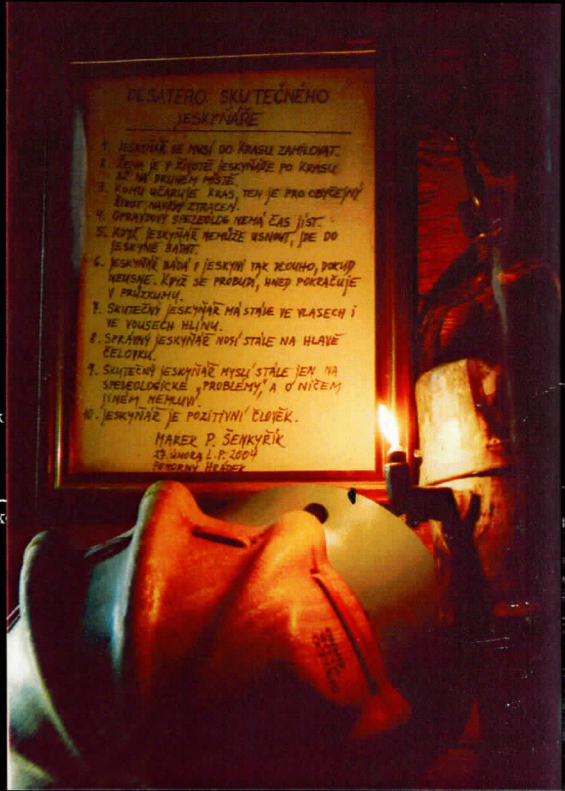 DESATERO SKUTEČNÉHO
JESKYŇÁŘE
1. JESKYŇÁŘ SE MUSÍ DO KRASU ZAMILOVAT.
2. ŽENA JE V ŽIVOTĚ JESKYŇÁŘE PO KRASU
AŽ NA DRUHÉM MÍSTĚ.
3. KOMU UČARUJE KRAS, TEN JE PRO OBYČEJNÝ
ŽIVOT NAVŽDY ZTRACEN.
4. OPRAVDOVÝ SPELEOLOG NEMÁ ČAS JÍST.
5. KDYŽ JESKYŇÁŘ NEMŮŽE USNOUT, JDE DO
JESKYNĚ BÁDAT.
6. JESKYŇÁŘ BÁDÁ V JESKYNI TAK DLOUHO, DOKUD
NEUSNE. KDYŽ SE PROBUDÍ, HNED POKRAČUJE
V PRŮZKUMU.
7. SKUTEČNÝ JESKYŇÁŘ MÁ STÁLE VE VLASECH I
VE VOUSECH HLÍNU.
8. SPRÁVNÝ JESKYŇÁŘ NOSÍ STÁLE NA HLAVĚ
ČELOVKU.
9. SKUTEČNÝ JESKYŇÁŘ MYSLÍ STÁLE JEN NA
SPELEOLOGICKÉ „PROBLÉMY“, A O NIČEM
JINÉM NEMLUVÍ.
10. JESKYŇÁŘ JE POZITIVNÍ ČLOVĚK.
MAREK P. ŠENKYŘÍK
27. ÚNORA L.P. 2004
POHORNÝ HRÁDEK